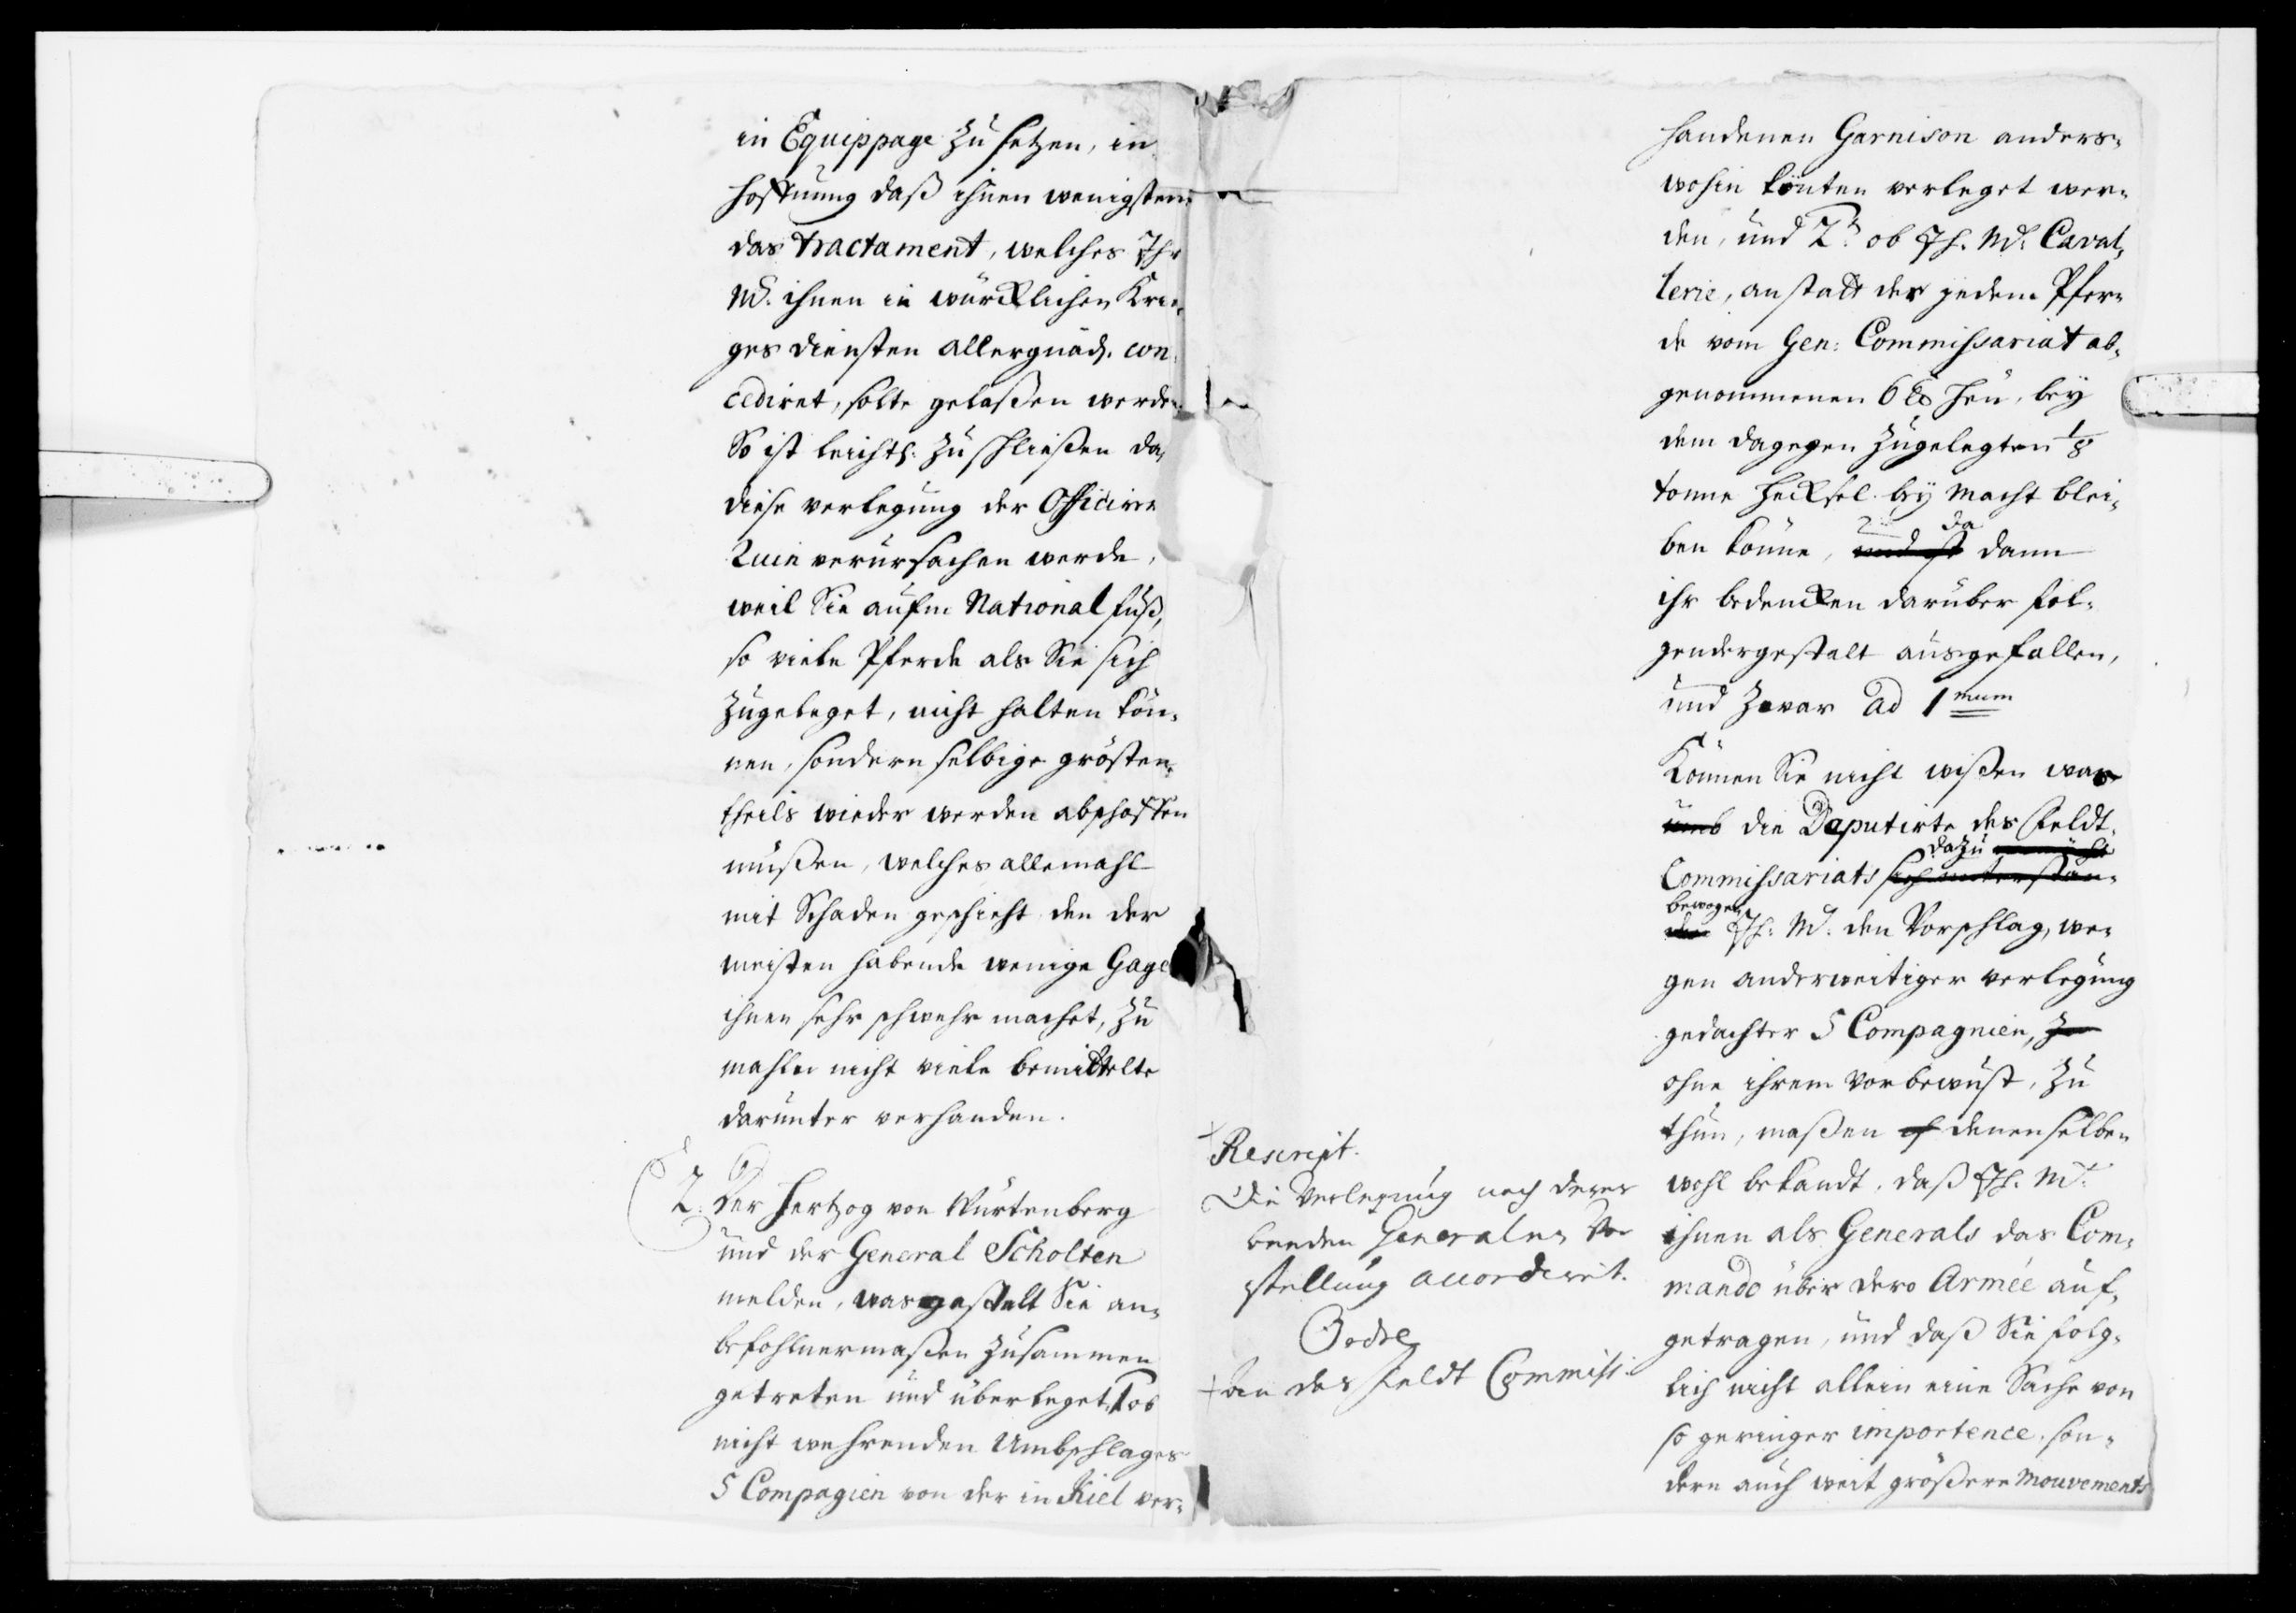 in Equippage zu setzen, in
hoffnung daß ihnen wenigstens
das tractament, welches Ihr
Mt. ihnen in würcklichen Krie¬
ges diensten allergnäd. con¬
cediret, solte gelaßen werden.
So ist leichtl. zu schließen daß
diese verlegung der Officirer
Ruin verursachen werde,
weil Sie aufm National fuß,
so viele Pferde als Sie sich
zugeleget, nicht halten kön¬
nen, sondern selbige grösten¬
theils wieder werden abschaffen
müßen, welches allemahl
mit Schaden geschieht, den der
meisten habende wenige Gage
ihnen sehr schwehr machet, zu
mahlen nicht viele bemittelte
darunter verhanden.
2. Der Hertzog von Würtenberg
und der General Scholten
melden, wasgestalt Sie an¬
befohlnermaßen zusammen
getreten und überleget, 1 ob
nicht wehrenden Umbschlages
5 Compagien von der in Kiel ver¬
Rescript.
Die Verlegung nach derer
beeden Generalen Vor
stellung accordiret.
Ordre
an das Feldt Commiss.
handenen Garnison anders¬
wohin könten verleget wer¬
den, und 2t. ob Ih. Mt. Caval¬
lerie, anstatt der jedem Pfer¬
de vom Gen: Commissariat ab¬
genommenen 6 ℔ Heu, bey
dem dagegen zugelegten 1/8
tonne Hecksel bey Macht blei¬
ben könne, und ist da dann
ihr bedencken darüber fol¬
gendergestalt ausgefallen,
und zwar ad 1mum
Können Sie nicht wißen was
umb die Deputirte des Feldt
dazu
Commissariats sich unterstan¬
bewogen
den Ih: Mt. den Vorschlag, we¬
gen anderweitiger verlegung
gedachter 5 Compagnien, zu
ohne ihrem vorbewust, zu
thun, maßen denenselben
wohl bekandt, daß Ih. Mt.
ihnen als Generals das Com¬
mando über dero Armée auf¬
getragen, und daß Sie folg¬
lich nicht allein eine Sache von
so geringer importence, son¬
dern auch weit größere Mouvements